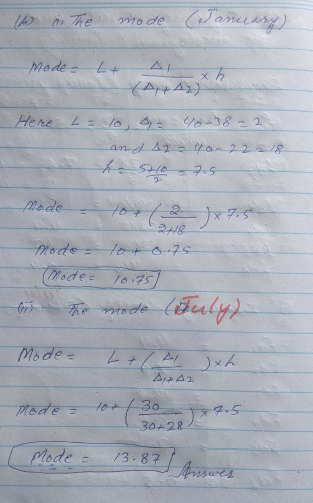 (b) (i) The mode (January)
Mode = L + Δ1 / (Δ1 + Δ2) × h
Here L = 10, Δ1 = 40 - 38 = 2
and Δ2 = 40 - 22 = 18
h = 5+10 / 2 = 7.5
Mode = 10 + (2 / 2+18) × 7.5
Mode = 10 + 0.75
Mode = 10.75
(ii) The mode (July)
Mode = L + (Δ1 / Δ1+Δ2) × h
Mode = 10 + (30 / 30+28) × 7.5
Mode = 13.87 Answer